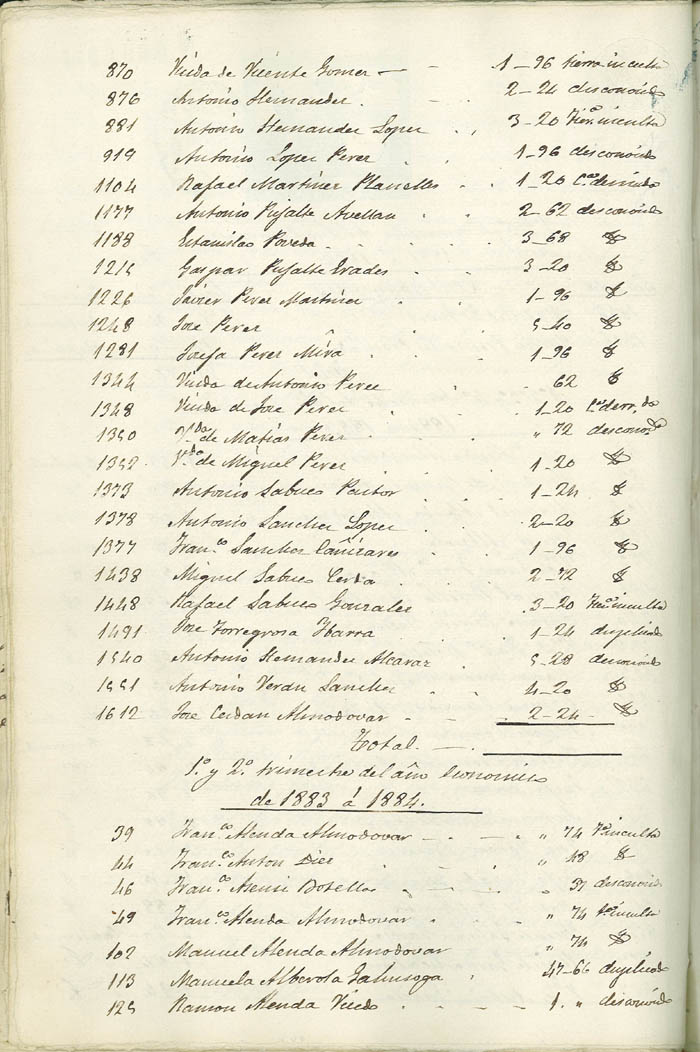 870 Viuda de Vicente Gomez — 1-96 tierra inculta
876 Antonio Hernandez. 2-24 desconocido
881 Antonio Hernandez Lopez 3-20 Tier.ª inculta
919 Antonio Lopez Perez 1-96 desconocido
1104 Rafael Martinez Planelles 1-20 C.ª
1177 Antonio Rifalte Avellan 2-62 desconocido
1188 Estanislao Poveda 3-68 "
1215 Gaspar Rifalte Prades 3-20 "
1226 Javier Perez Martinez 1-96 "
1248 Jose Perez 5-40 "
1281 Josefa Perez Mira 1-96 "
1344 Viuda de Antonio Perez 62 "
1348 Viuda de Jose Perez 1-20 C.ª derr.da
1350 V.da de Matias Perez " 72 descono.do
1352 V.da de Miguel Perez 1-20 "
1373 Antonio Sabuco Pastor 1-24 "
1378 Antonio Sanchez Lopez 2-20 "
1377 Fran.co Sanchez Cañizares 1-96 "
1438 Miguel Sabuco Cerda 2-72 "
1448 Rafael Sabuco Gonzalez 3-20 Tier.ª inculta
1491 Jose Torregrosa Ibarra 1-24 duplicado
1540 Antonio Hernandez Alcaraz 5-28 desconocido
1551 Antonio Verdu Sanchez 4-20 "
1612 Jose Cerdan Almodovar 2-24 "
Total.
1.º y 2.º trimestre del año Economico
de 1883 á 1884.
39 Fran.co Alenda Almodovar " 74 T.ª inculta
44 Fran.co Anton Diez " 48 "
46 Fran.co Asensi Botella " 37 desconocido
49 Fran.co Alenda Almodovar " 74 T.ª inculta
102 Manuel Alenda Almodovar " 74 "
113 Manuela Alberola Galinsoga 47-66 duplicado
125 Ramon Alenda 1. " desconocido